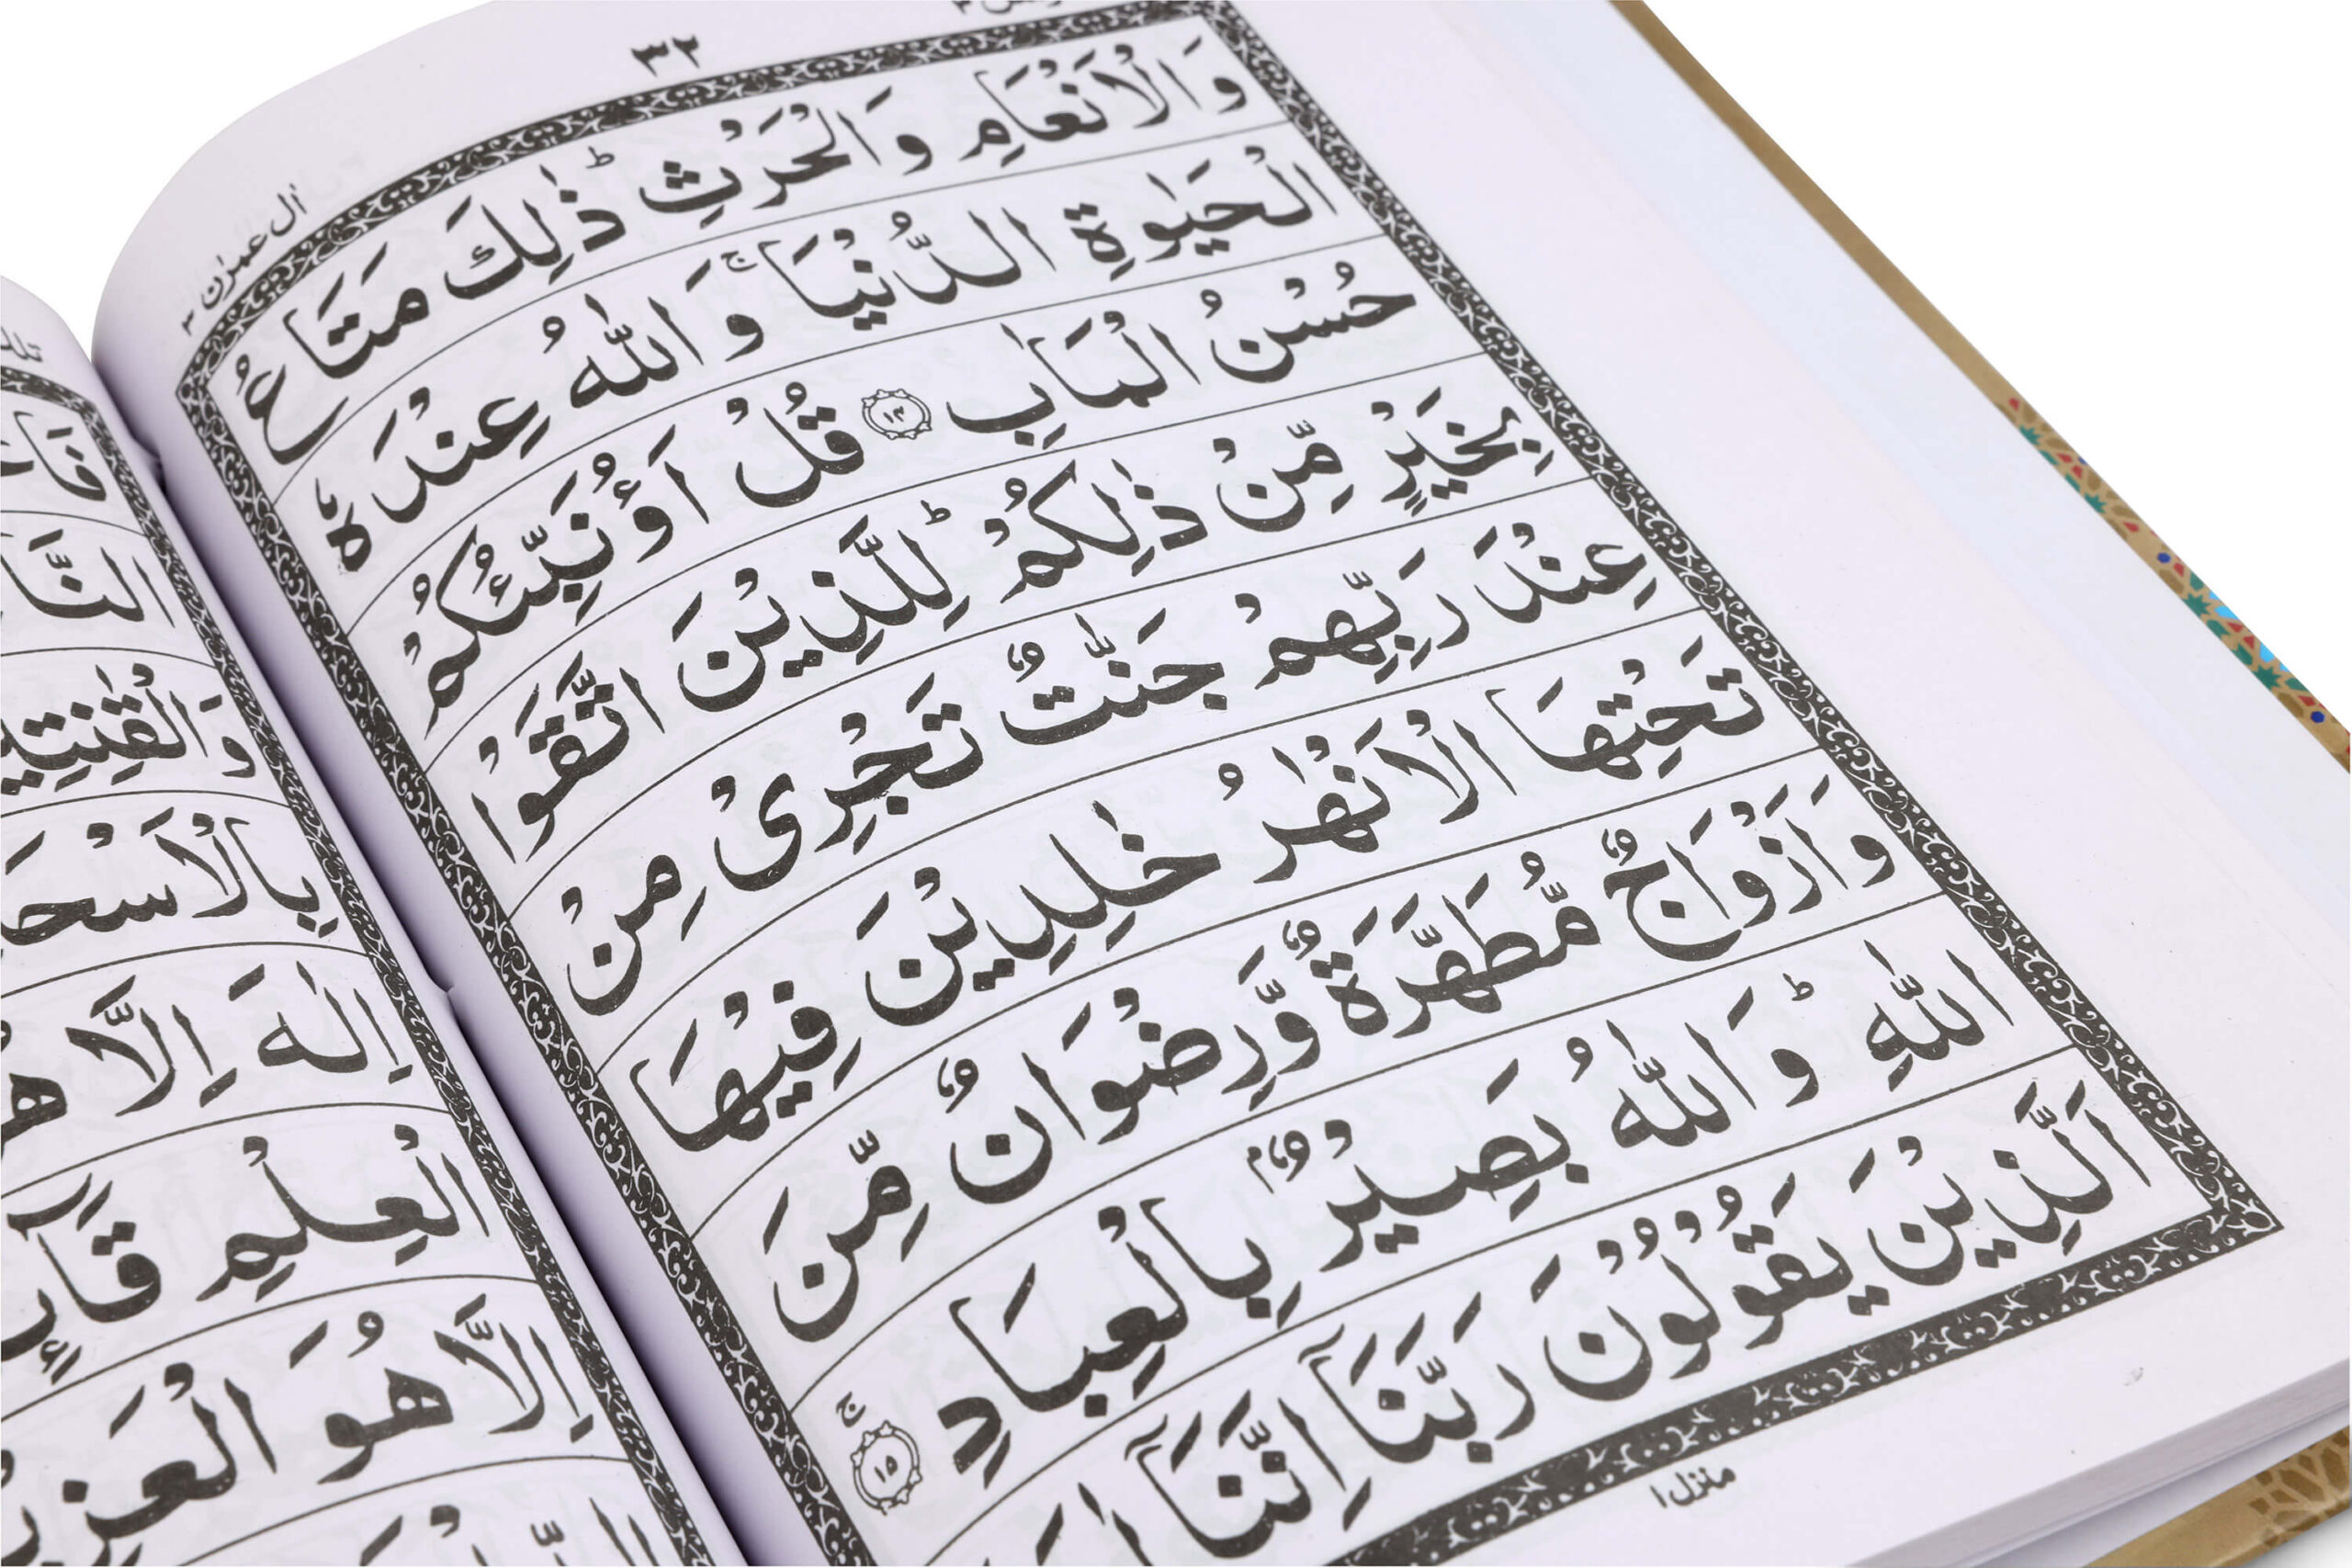 ٣٢
اٰل عمرٰن ٣
وَالْاَنْعَامِ وَالْحَرْثِ ؕ ذٰلِكَ مَتَاعُ
الْحَيٰوةِ الدُّنْيَا ۚ وَاللّٰهُ عِنْدَهٗ
حُسْنُ الْمَاٰبِ ١٤ قُلْ اَؤُنَبِّئُكُمْ
بِخَيْرٍ مِّنْ ذٰلِكُمْ ؕ لِلَّذِيْنَ اتَّقَوْا
عِنْدَ رَبِّهِمْ جَنّٰتٌ تَجْرِىْ مِنْ
تَحْتِهَا الْاَنْهٰرُ خٰلِدِيْنَ فِيْهَا
وَاَزْوَاجٌ مُّطَهَّرَةٌ وَّرِضْوَانٌ مِّنَ
اللّٰهِ ؕ وَاللّٰهُ بَصِيْرٌۢ بِالْعِبَادِ ۚ ١٥
اَلَّذِيْنَ يَقُوْلُوْنَ رَبَّنَاۤ اِنَّنَاۤ
منزل ١
وَالْقٰنِتِيْ
بِالْاَسْحَا
اِلٰهَ اِلَّا
الْعِلْمِ
اِلَّا هُوَ الْعَزِيْ